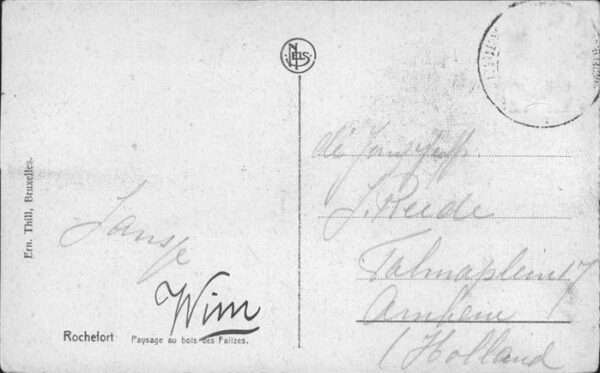 NELS
Ern. Thill, Bruxelles.
Wim
Rochefort Paysage au bois des Falizes.
J. Reede
Talmaplein 17
Arnhem
Holland